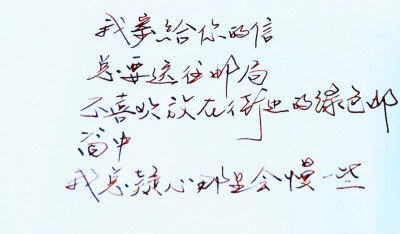 我寄给你的信
总要送往邮局
不喜欢放在街边的绿色邮
筒中
我总疑心那里会慢一些